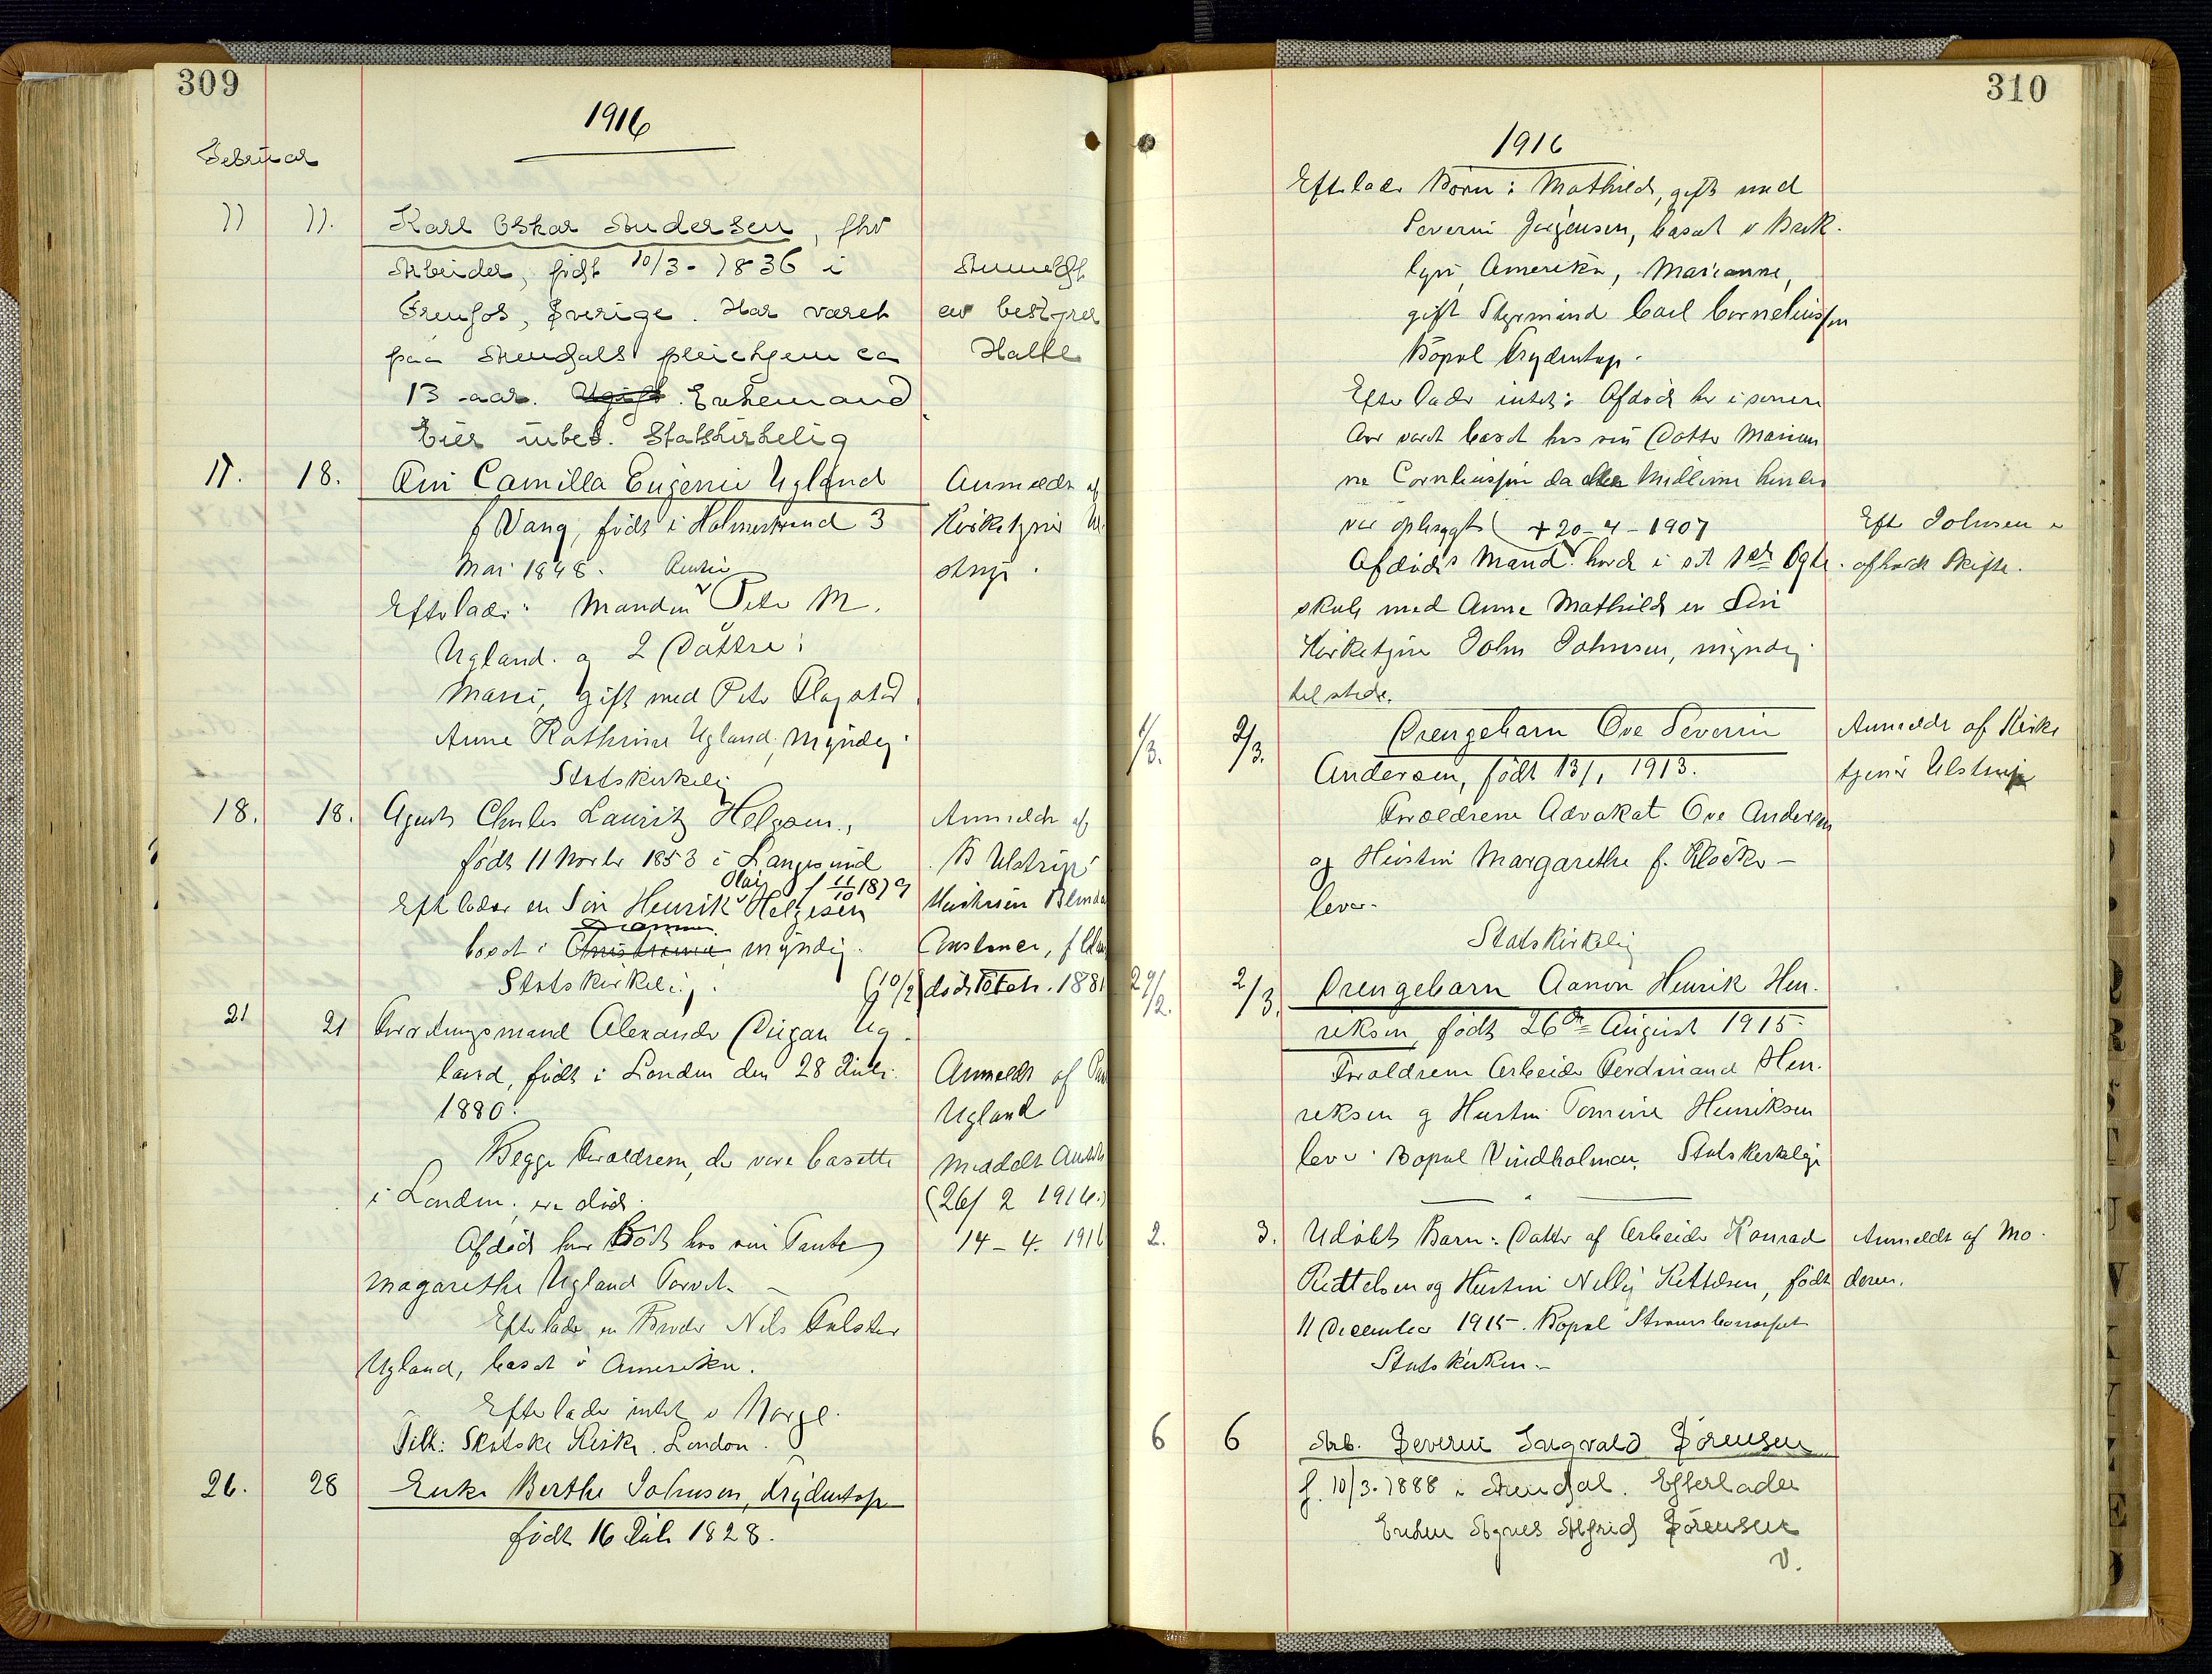 309
1916
Februar
11 11. Karl Oskar Andersen, fhv
Arbeider, født 10/3-1836 i Anmeldt
Sverige. Har været av bestyrer
paa Arendals pleiehjem ca Halle
13 aar. Ugift. Enkemand
Eier intet. Statskirkelig
17. 18. Fru Camilla Eugenie Ugland Anmeldt af
f Vang, født i Holmestrand 3 Kirketjener U.
Mai 1848. Rentier strup.
Efterlader: Manden Peter M.
Ugland. og 2 Døttre:
Marie, gift med Peter Flagstad
Anne Kathrine Ugland, myndig.
Statskirkelig
18. 18. Agent Charles Lauritz Helgesen, Anmeldt af
født 11 Novbr 1853 i Langesund B Ulstrup
Olai f 11/10 1879
Efterlader en Søn Henrik Helgesen Hustruen
Drammen
bosat i Christiania myndig.
Statskirkelig. død Febr. 1881
21 21 Forretningsmand Alexander Ug-
land, født i London den 28 Juli Anmeldt af
1880. Ugland
Begge Forældrene, der vare bosatte Meddelt
i London, ere døde. (26/2 1916.)
Afdøde har Bodt hos sin Tante 14-4. 1916
Magarethe Ugland Torvet.
Efterlader en Broder Nils Ugland, bosat i Amerika.
Efterlader intet i Norge.
Tilh: Skotske Kirke. London.
26. 28 Enke Berthe Johnsen, Krydentop
født 16 Juli 1828.
310
1916
Efterlader Børn: Mathilde, gift med
Severin Jørgensen, bosat i Brook-
lyn, Amerika, Marianne,
gift Styrmand Carl Corneliussen
Bopæl Krydentop.
Efterlader intet: Afdøde har i senere
Aar været bosat hos sin Datter Marian
ne Corneliussen da Midlerne hendes
var opbrugte (+ 20-4-1907 Eft Johnsen er
Afdødes Mand havde i sit 1ste Egte- afholdt Skifte.
skab med Anne Mathilde en Søn
Kirketjener John Johnsen, myndig
tilstede.
1/3. 2/3. Drengebarn Ove Severin Anmeldt af Kirke
Andersen, født 13/1 1913. tjener Ulstrup
Forældrene Advokat Ove Andersen
og Hustru Margarethe f. Kløcker -
lever.
Statskirkelig
29/2. 2/3. Drengebarn Aanon Henrik Hen-
riksen, født 26de August 1915.
Forældrene Arbeider Ferdinand Hen-
riksen og Hustru Tomine Henriksen
lever. Bopæl Vindholmen. Statskirkelige
2. 3. Udøbt Barn: Datter af Arbeider Konrad Anmeldt af Mo-
Kittelsen og Hustru Nelly Kittelsen, født deren.
11 December 1915. Bopæl Strømsbonæset
Statskirken.-
6 6 Arb. Severin Ingvald Sørensen
f. 10/3-1888 i Arendal. Efterlader
Enken Agnes Alfrid Sørensen
v.